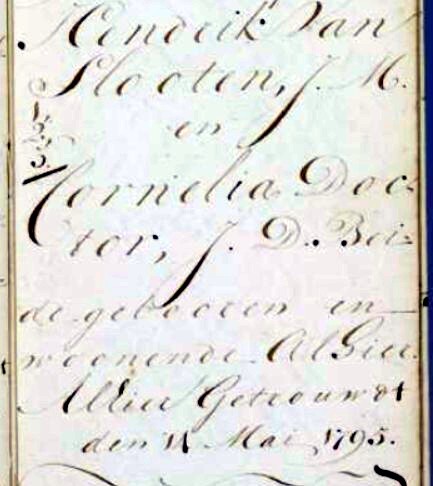 Hendrik Van
Slooten, J. M.
en
Cornelia Doc-
tor, J. D. Bei-
de gebooren en
woonende Alhier.
Alhier Getrouwdt
den 11 Mai 1795.